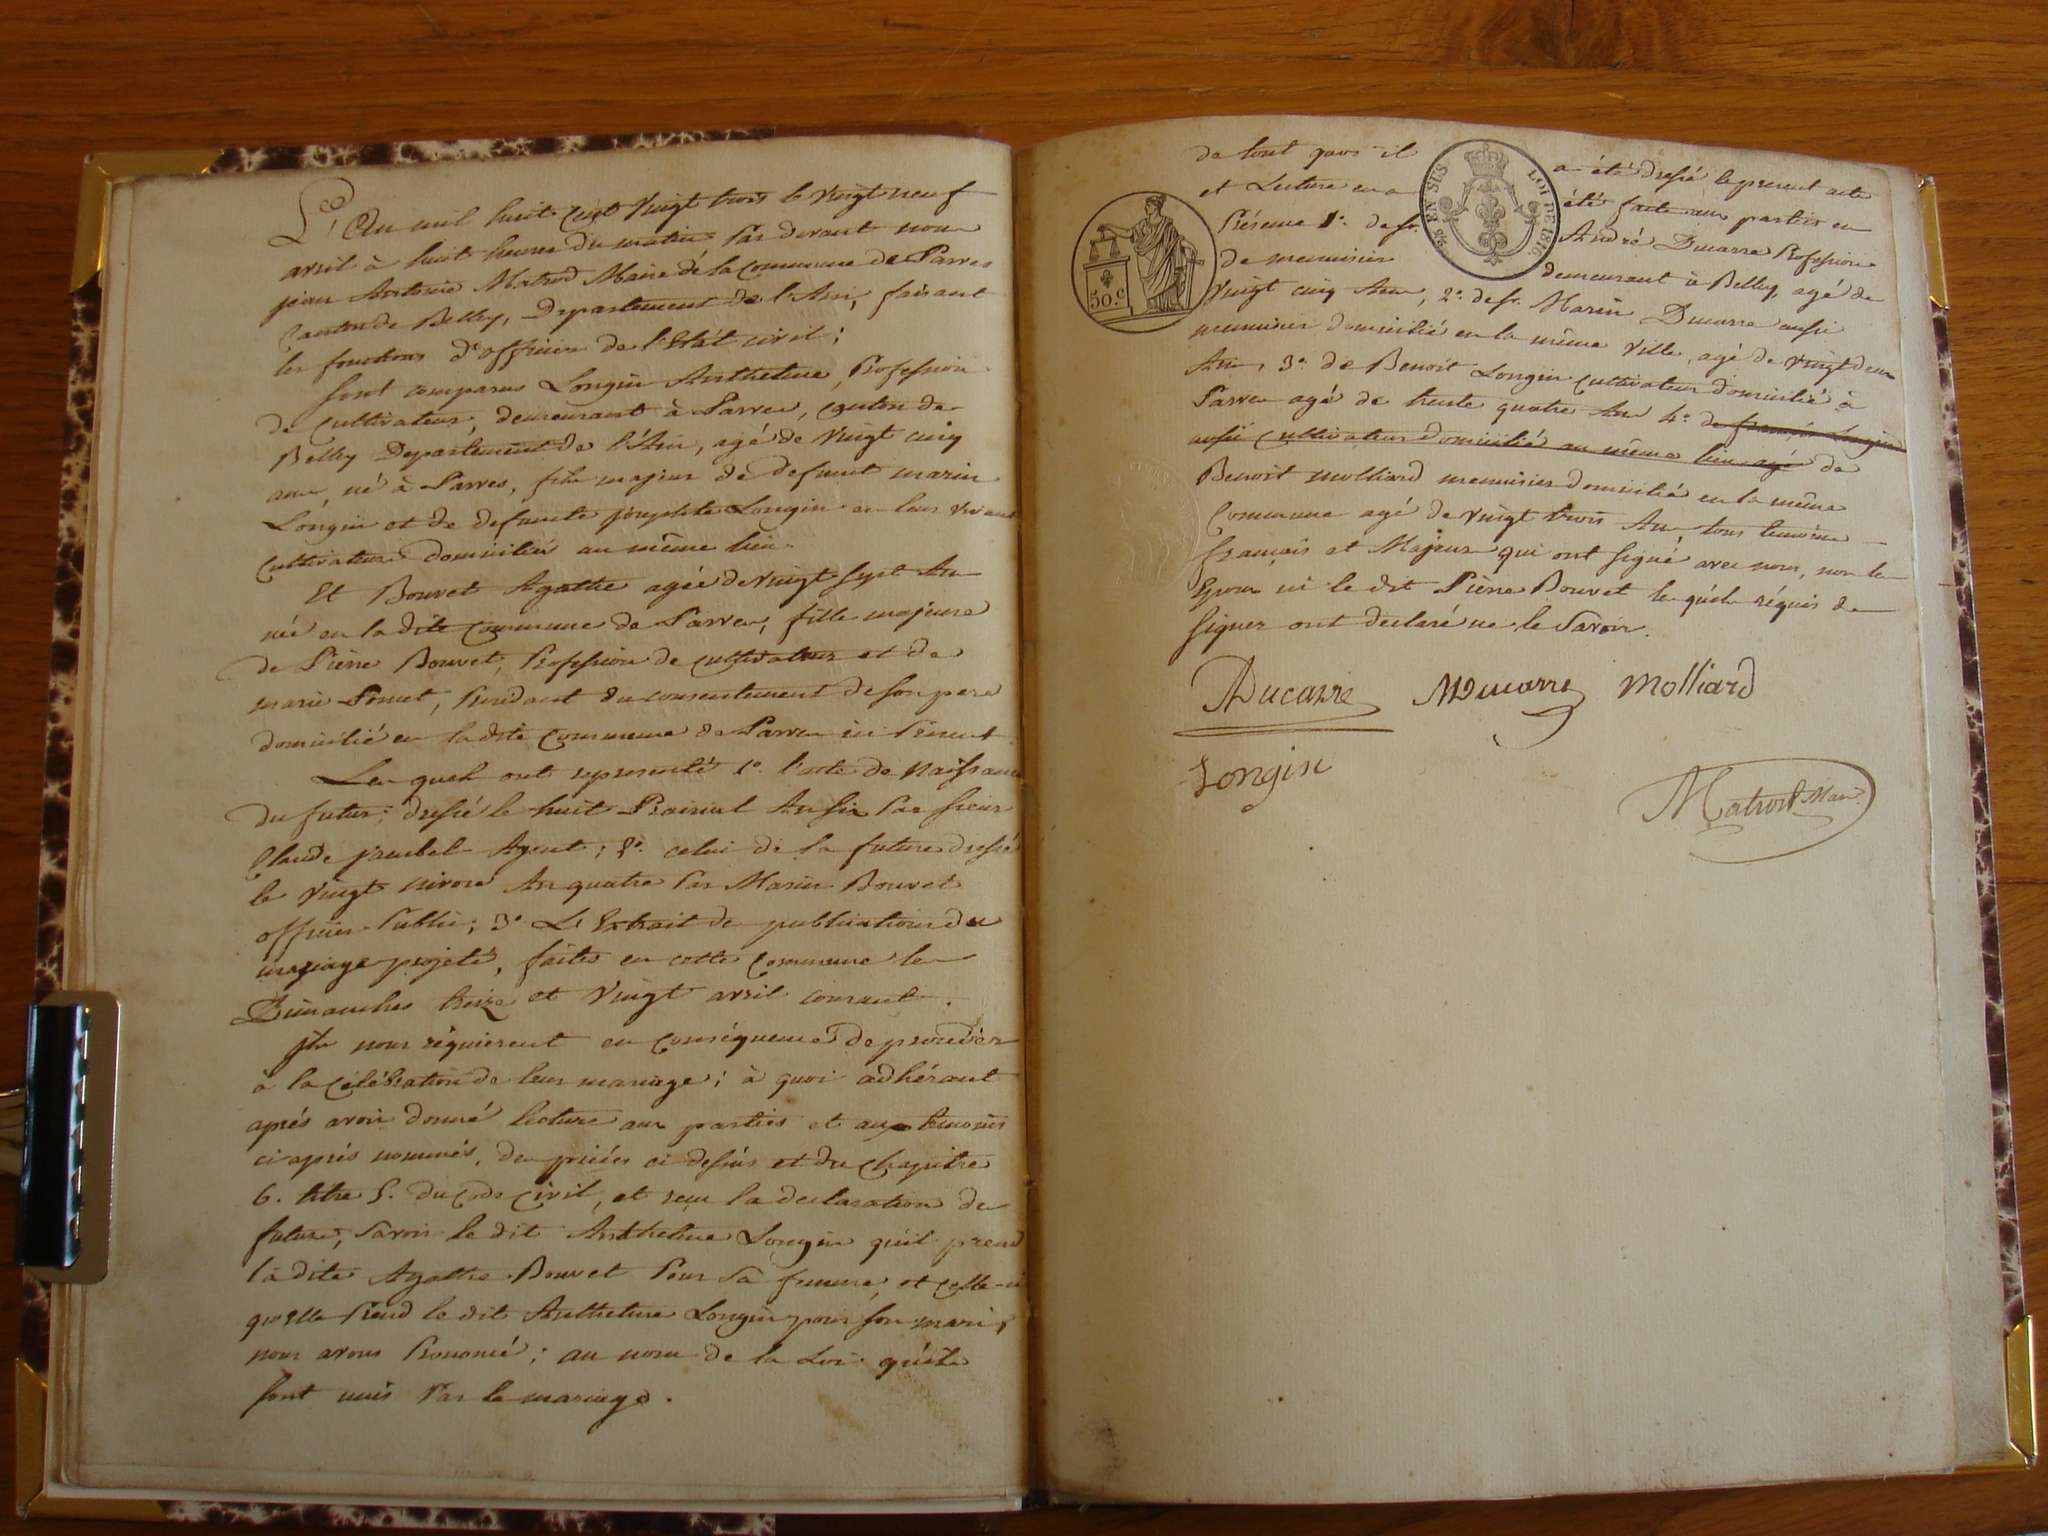 L'an mil huit cent vingt trois le vingt neuf
avril à huit heures du matin par devant nous
jean Antoine Matrod Maire de la Commune de Parves
Canton de Belley, Departement de l'Ain, faisant
les fonctions d'officier de l'Etat civil;
sont comparus Longin Anthelme, Profession
de cultivateur, demeurant à Parves, canton de
Belley Departement de l'Ain, agé de vingt cinq
ans, né à Parves, fils majeur de defunt marin
Longin et de defunte josephte Longin en leur vivant
cultivateurs domiciliés au même lieu.
Et Bouvet Agathe agée de vingt sept Ans
née en la dite Commune de Parves, fille majeure
de Pièrre Bouvet, Profession de cultivateur et de
marie Pomet, procédant du consentement de son pere
domicilié en la dite Commune de Parves ici présent.
Les quels ont representé 1º. l'acte de Naissance
du futur; dressé le huit Prairial An six par sieur
Claude jambel Agent; 2º. celui de la future dressé
le vingt nivose An quatre par Marin Bouvet
officier Public; 3º L'Extrait de publications du
mariage projeté, faites en cette Commune les
Dimanches treize et vingt avril courant.
ils nous réquierent en conséquence de procéder
à la célébration de leur mariage; à quoi adhérant
aprés avoir donné lecture aux parties et aux temoins
ci aprés nommés, des pièces ci dessus et du chapitre
6. titre 5. du Code Civil, et reçu la declaration des
futurs, savoir le dit Anthelme Longin qu'il prend
la dite Agathe Bouvet Pour sa femme, et celle-ci
qu'elle Prend le dit Anthelme Longin pour son mari,
nous avons Prononcé; au nom de la Loi qu'ils
sont unis Par le mariage.
de tout quoi il a été dressé le present acte
et Lecture en a été faite aux parties en
Présence 1º. de sr. André Ducarre Profession
de menuisier demeurant à Belley, agé de
vingt cinq Ans, 2º. de sr. Marin Ducarre aussi
menuisier domicilié en la même ville, agé de vingt deux
Ans, 3º. de Benoit Longin cultivateur domicilié à
Parves agé de trente quatre Ans 4º. de françois Longin
aussi cultivateur domicilié au même lieu agé de
Benoit Molliard menuisier domicilié en la même
Commune agé de vingt trois Ans, tous temoins
français et Majeurs qui ont signé avec nous, non les
Epoux ni le dit Pièrre Bouvet les quels réquis de
signer ont déclaré ne le savoir.
EN SUS
LOI DE 1816
50.C
ADucarre MDucarre Molliard
Longin
Matrod Mair.